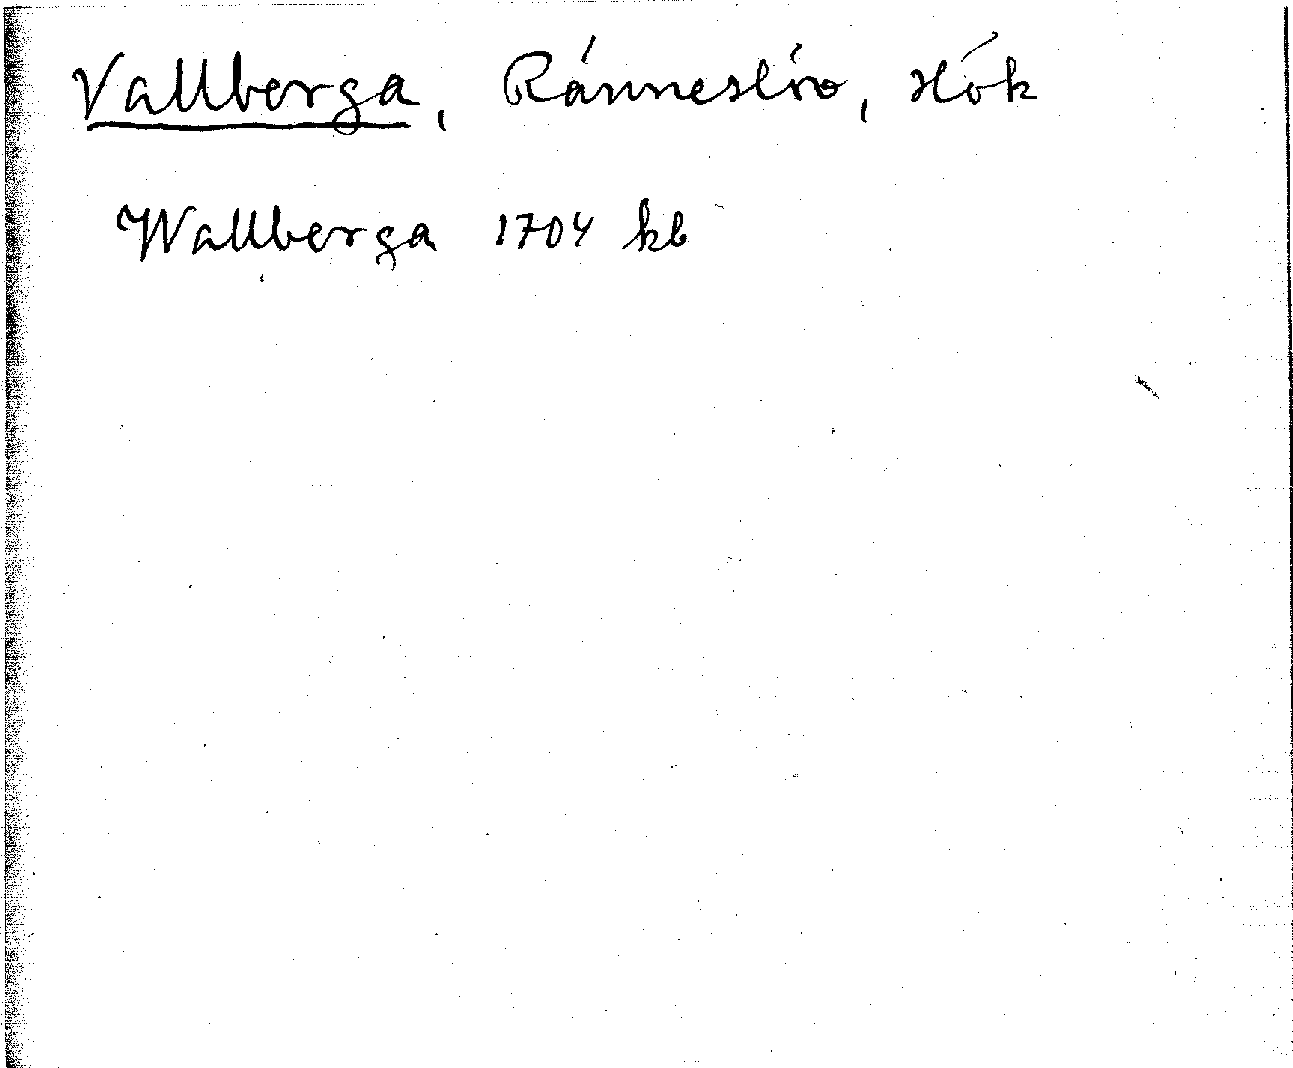 Vallberga, Ränneslöv, Hök
Wallberga 1704 kb